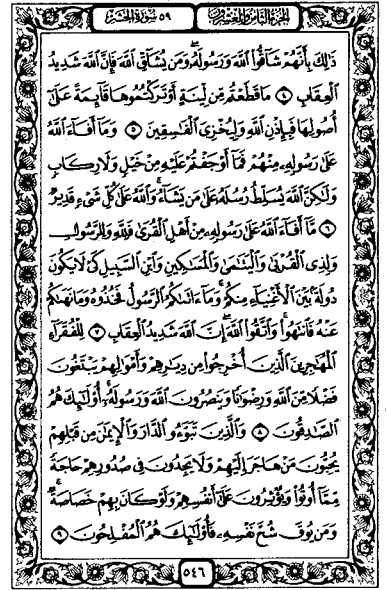 الجزء الثامن والعشرون ٥٩ سورة الحشر
ذَٰلِكَ بِأَنَّهُمْ شَاقُّوا۟ ٱللَّهَ وَرَسُولَهُۥ وَمَن يُشَآقِّ ٱللَّهَ فَإِنَّ ٱللَّهَ شَدِيدُ
ٱلْعِقَابِ ٤ مَا قَطَعْتُم مِّن لِّينَةٍ أَوْ تَرَكْتُمُوهَا قَآئِمَةً عَلَىٰٓ
أُصُولِهَا فَبِإِذْنِ ٱللَّهِ وَلِيُخْزِىَ ٱلْفَـٰسِقِينَ ٥ وَمَآ أَفَآءَ ٱللَّهُ
عَلَىٰ رَسُولِهِۦ مِنْهُمْ فَمَآ أَوْجَفْتُمْ عَلَيْهِ مِنْ خَيْلٍ وَلَا رِكَابٍ
وَلَـٰكِنَّ ٱللَّهَ يُسَلِّطُ رُسُلَهُۥ عَلَىٰ مَن يَشَآءُ ۚ وَٱللَّهُ عَلَىٰ كُلِّ شَىْءٍ قَدِيرٌ
٦ مَّآ أَفَآءَ ٱللَّهُ عَلَىٰ رَسُولِهِۦ مِنْ أَهْلِ ٱلْقُرَىٰ فَلِلَّهِ وَلِلرَّسُولِ
وَلِذِى ٱلْقُرْبَىٰ وَٱلْيَتَـٰمَىٰ وَٱلْمَسَـٰكِينِ وَٱبْنِ ٱلسَّبِيلِ كَىْ لَا يَكُونَ
دُولَةًۢ بَيْنَ ٱلْأَغْنِيَآءِ مِنكُمْ ۚ وَمَآ ءَاتَىٰكُمُ ٱلرَّسُولُ فَخُذُوهُ وَمَا نَهَىٰكُمْ
عَنْهُ فَٱنتَهُوا۟ ۚ وَٱتَّقُوا۟ ٱللَّهَ ۖ إِنَّ ٱللَّهَ شَدِيدُ ٱلْعِقَابِ ٧ لِلْفُقَرَآءِ
ٱلْمُهَـٰجِرِينَ ٱلَّذِينَ أُخْرِجُوا۟ مِن دِيَـٰرِهِمْ وَأَمْوَٰلِهِمْ يَبْتَغُونَ
فَضْلًا مِّنَ ٱللَّهِ وَرِضْوَٰنًا وَيَنصُرُونَ ٱللَّهَ وَرَسُولَهُۥٓ ۚ أُو۟لَـٰٓئِكَ هُمُ
ٱلصَّـٰدِقُونَ ٨ وَٱلَّذِينَ تَبَوَّءُو ٱلدَّارَ وَٱلْإِيمَـٰنَ مِن قَبْلِهِمْ
يُحِبُّونَ مَنْ هَاجَرَ إِلَيْهِمْ وَلَا يَجِدُونَ فِى صُدُورِهِمْ حَاجَةً
مِّمَّآ أُوتُوا۟ وَيُؤْثِرُونَ عَلَىٰٓ أَنفُسِهِمْ وَلَوْ كَانَ بِهِمْ خَصَاصَةٌ ۚ
وَمَن يُوقَ شُحَّ نَفْسِهِۦ فَأُو۟لَـٰٓئِكَ هُمُ ٱلْمُفْلِحُونَ ٩
٥٤٦